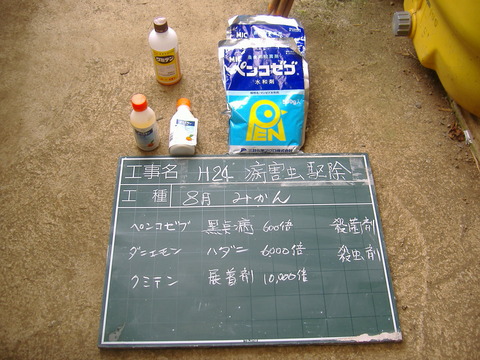 クミテン
MIC
ペンコゼブ
水和剤
PEN
工事名 H24 病害虫駆除
工種 8月 みかん
ペンコゼブ 黒点病 600倍 殺菌剤
ダニエモン ハダニ 6000倍 殺虫剤
クミテン 展着剤 10,000倍